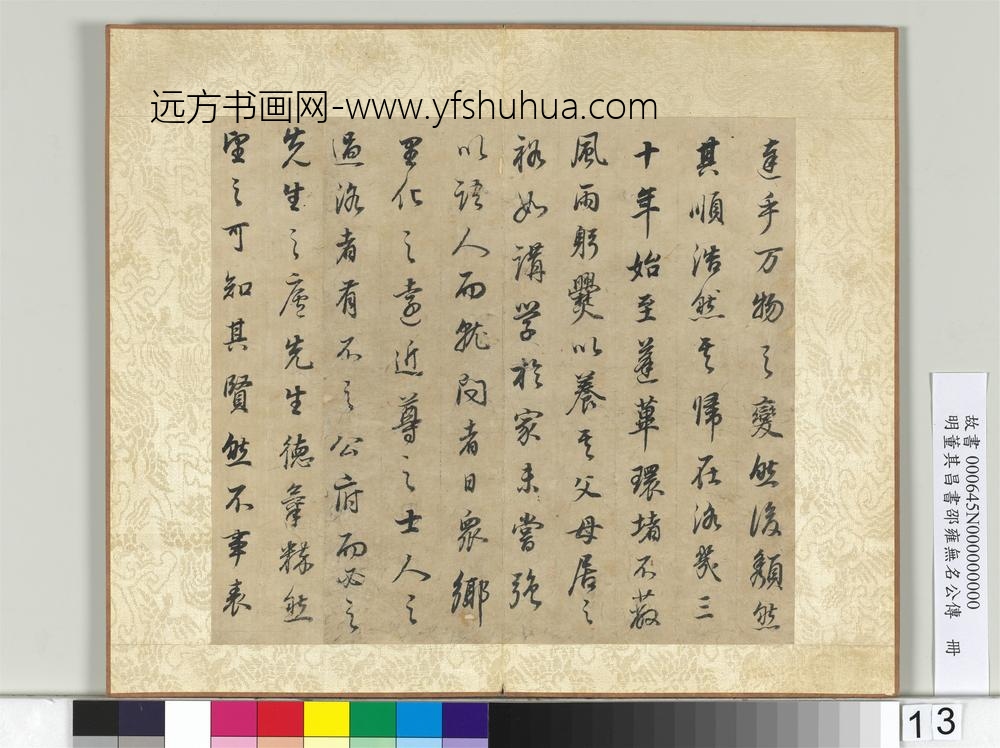 远方书画网-www.yfshuhua.com
達乎万物之變然後頹然
其順浩然其歸在洛幾三
十年始至蓬蓽環堵不蔽
風雨躬爨以養其父母居之
裕如講学於家未嘗強
以語人而就问者日眾鄉
里化之遠近尊之士人之
過洛者有不之公府而必之
先生之廬先生德氣粹然
望之可知其賢然不事表
故書 000645N000000000
明董其昌書邵雍無名公傳 冊
13